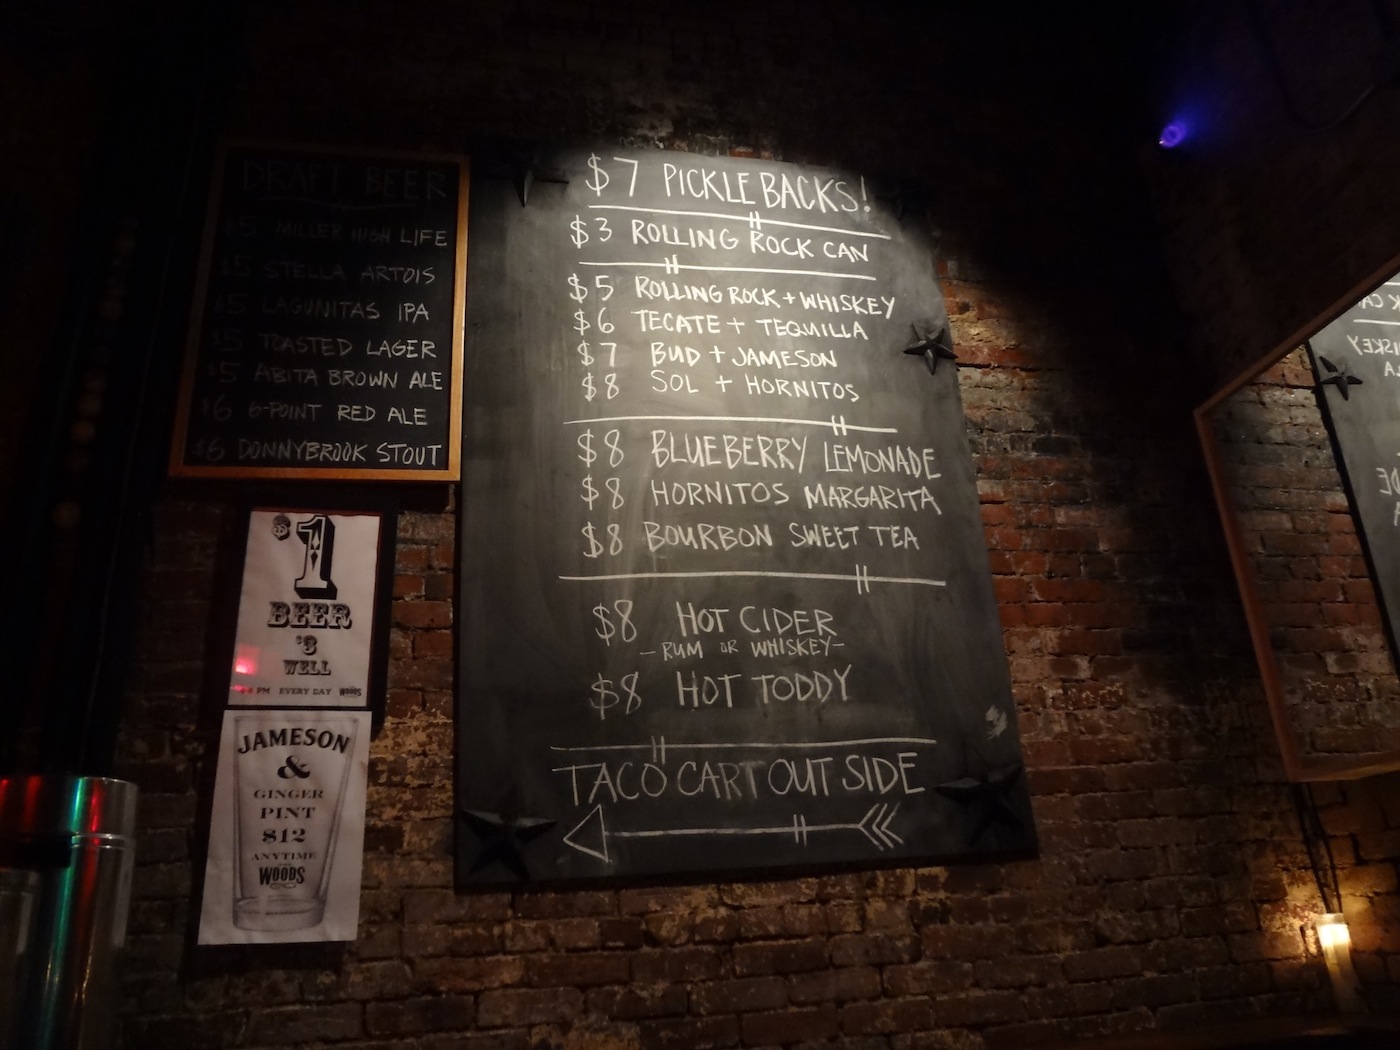 DRAFT BEER
$5 MILLER HIGH LIFE
$5 STELLA ARTOIS
$5 LAGUNITAS IPA
$5 TOASTED LAGER
$5 ABITA BROWN ALE
$6 6-POINT RED ALE
$6 DONNYBROOK STOUT
$1
BEER
$3
WELL
PM EVERY DAY WOODS
JAMESON
&
GINGER
PINT
$12
ANYTIME
WOODS
$7 PICKLE BACKS!
$3 ROLLING ROCK CAN
$5 ROLLING ROCK + WHISKEY
$6 TECATE + TEQUILLA
$7 BUD + JAMESON
$8 SOL + HORNITOS
$8 BLUEBERRY LEMONADE
$8 HORNITOS MARGARITA
$8 BOURBON SWEET TEA
$8 HOT CIDER
-RUM OR WHISKEY-
$8 HOT TODDY
TACO CART OUT SIDE